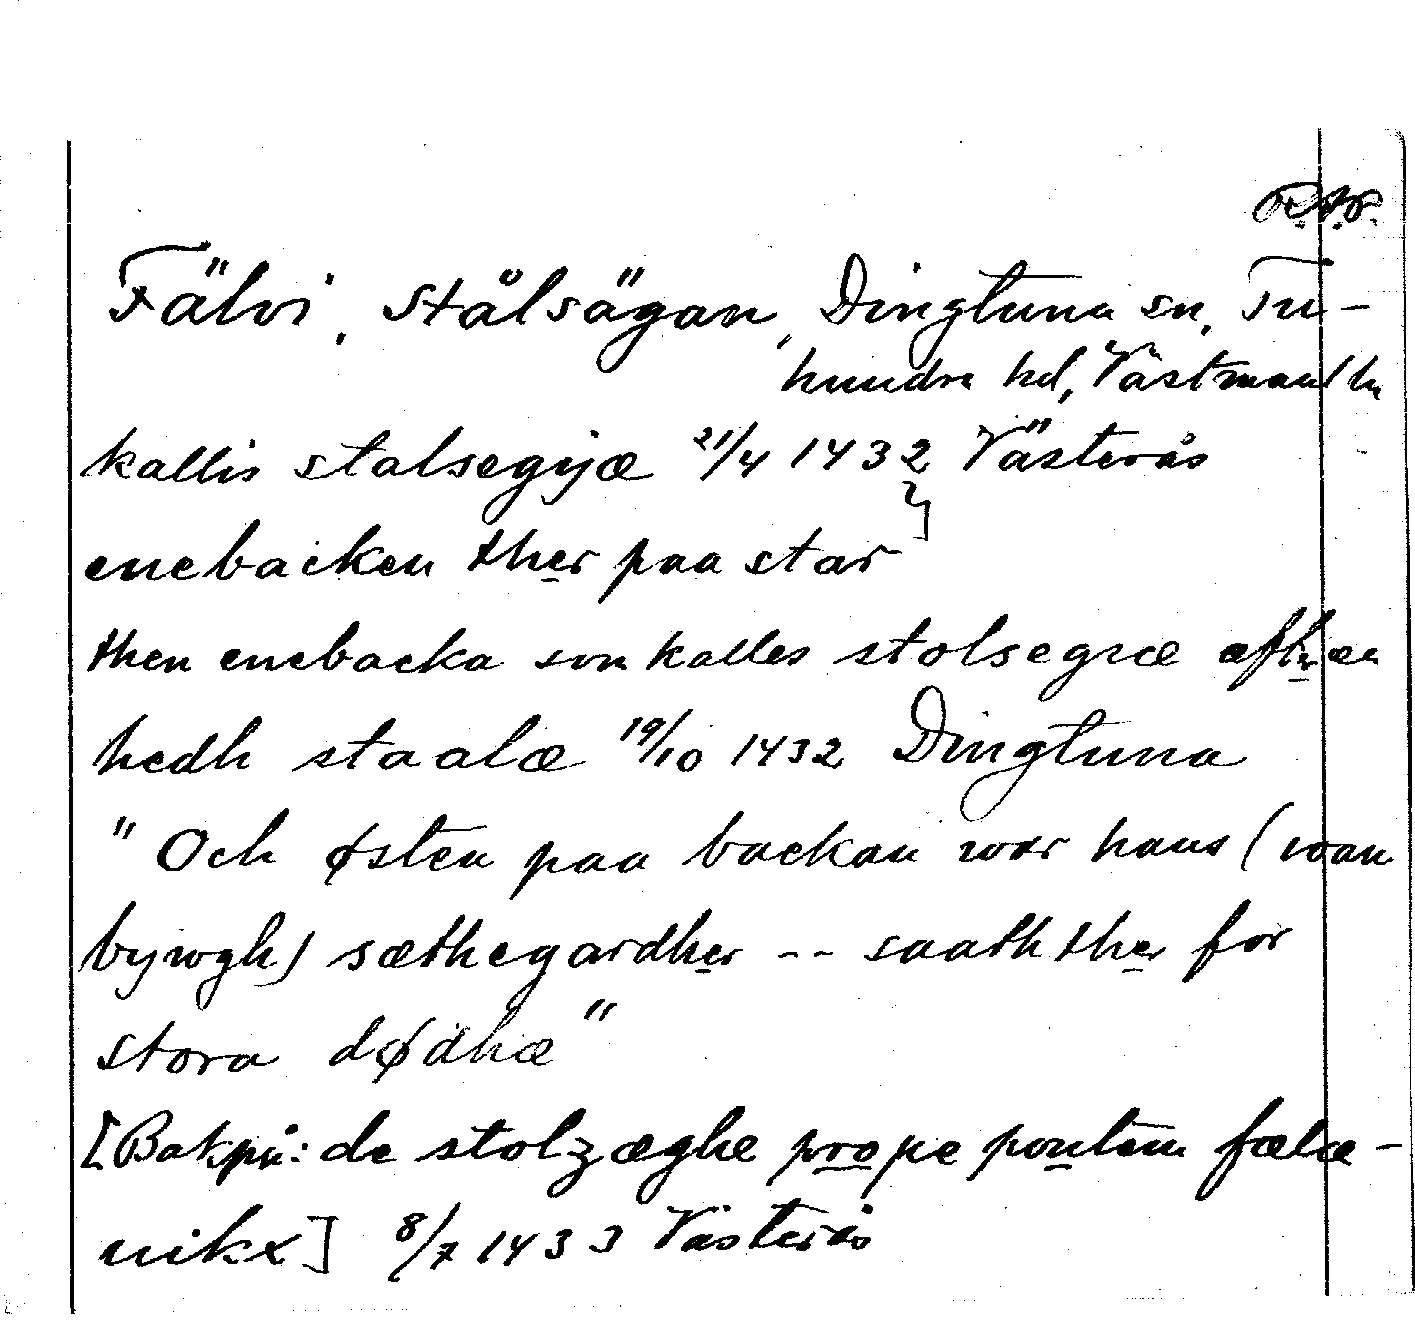 R.A.P.
Fälvi, Stålsägan, Dingtuna sn, Tu-
hundra hd, Västmanl ln
kallis stalsegijæ 21/4 1432 Västerås
enebacken ther paa star
then enebacka som kalles stolsegræ æfter æn
hedh staalæ 19/10 1432 Dingtuna
"Och østen paa backan war hans (wan
bywgh) sæthegardher -- saath ther for
stora dødhæ"
[Bakpå: de stolzæghe prope pontem fælæ-
wikx] 8/7 1433 Västerås